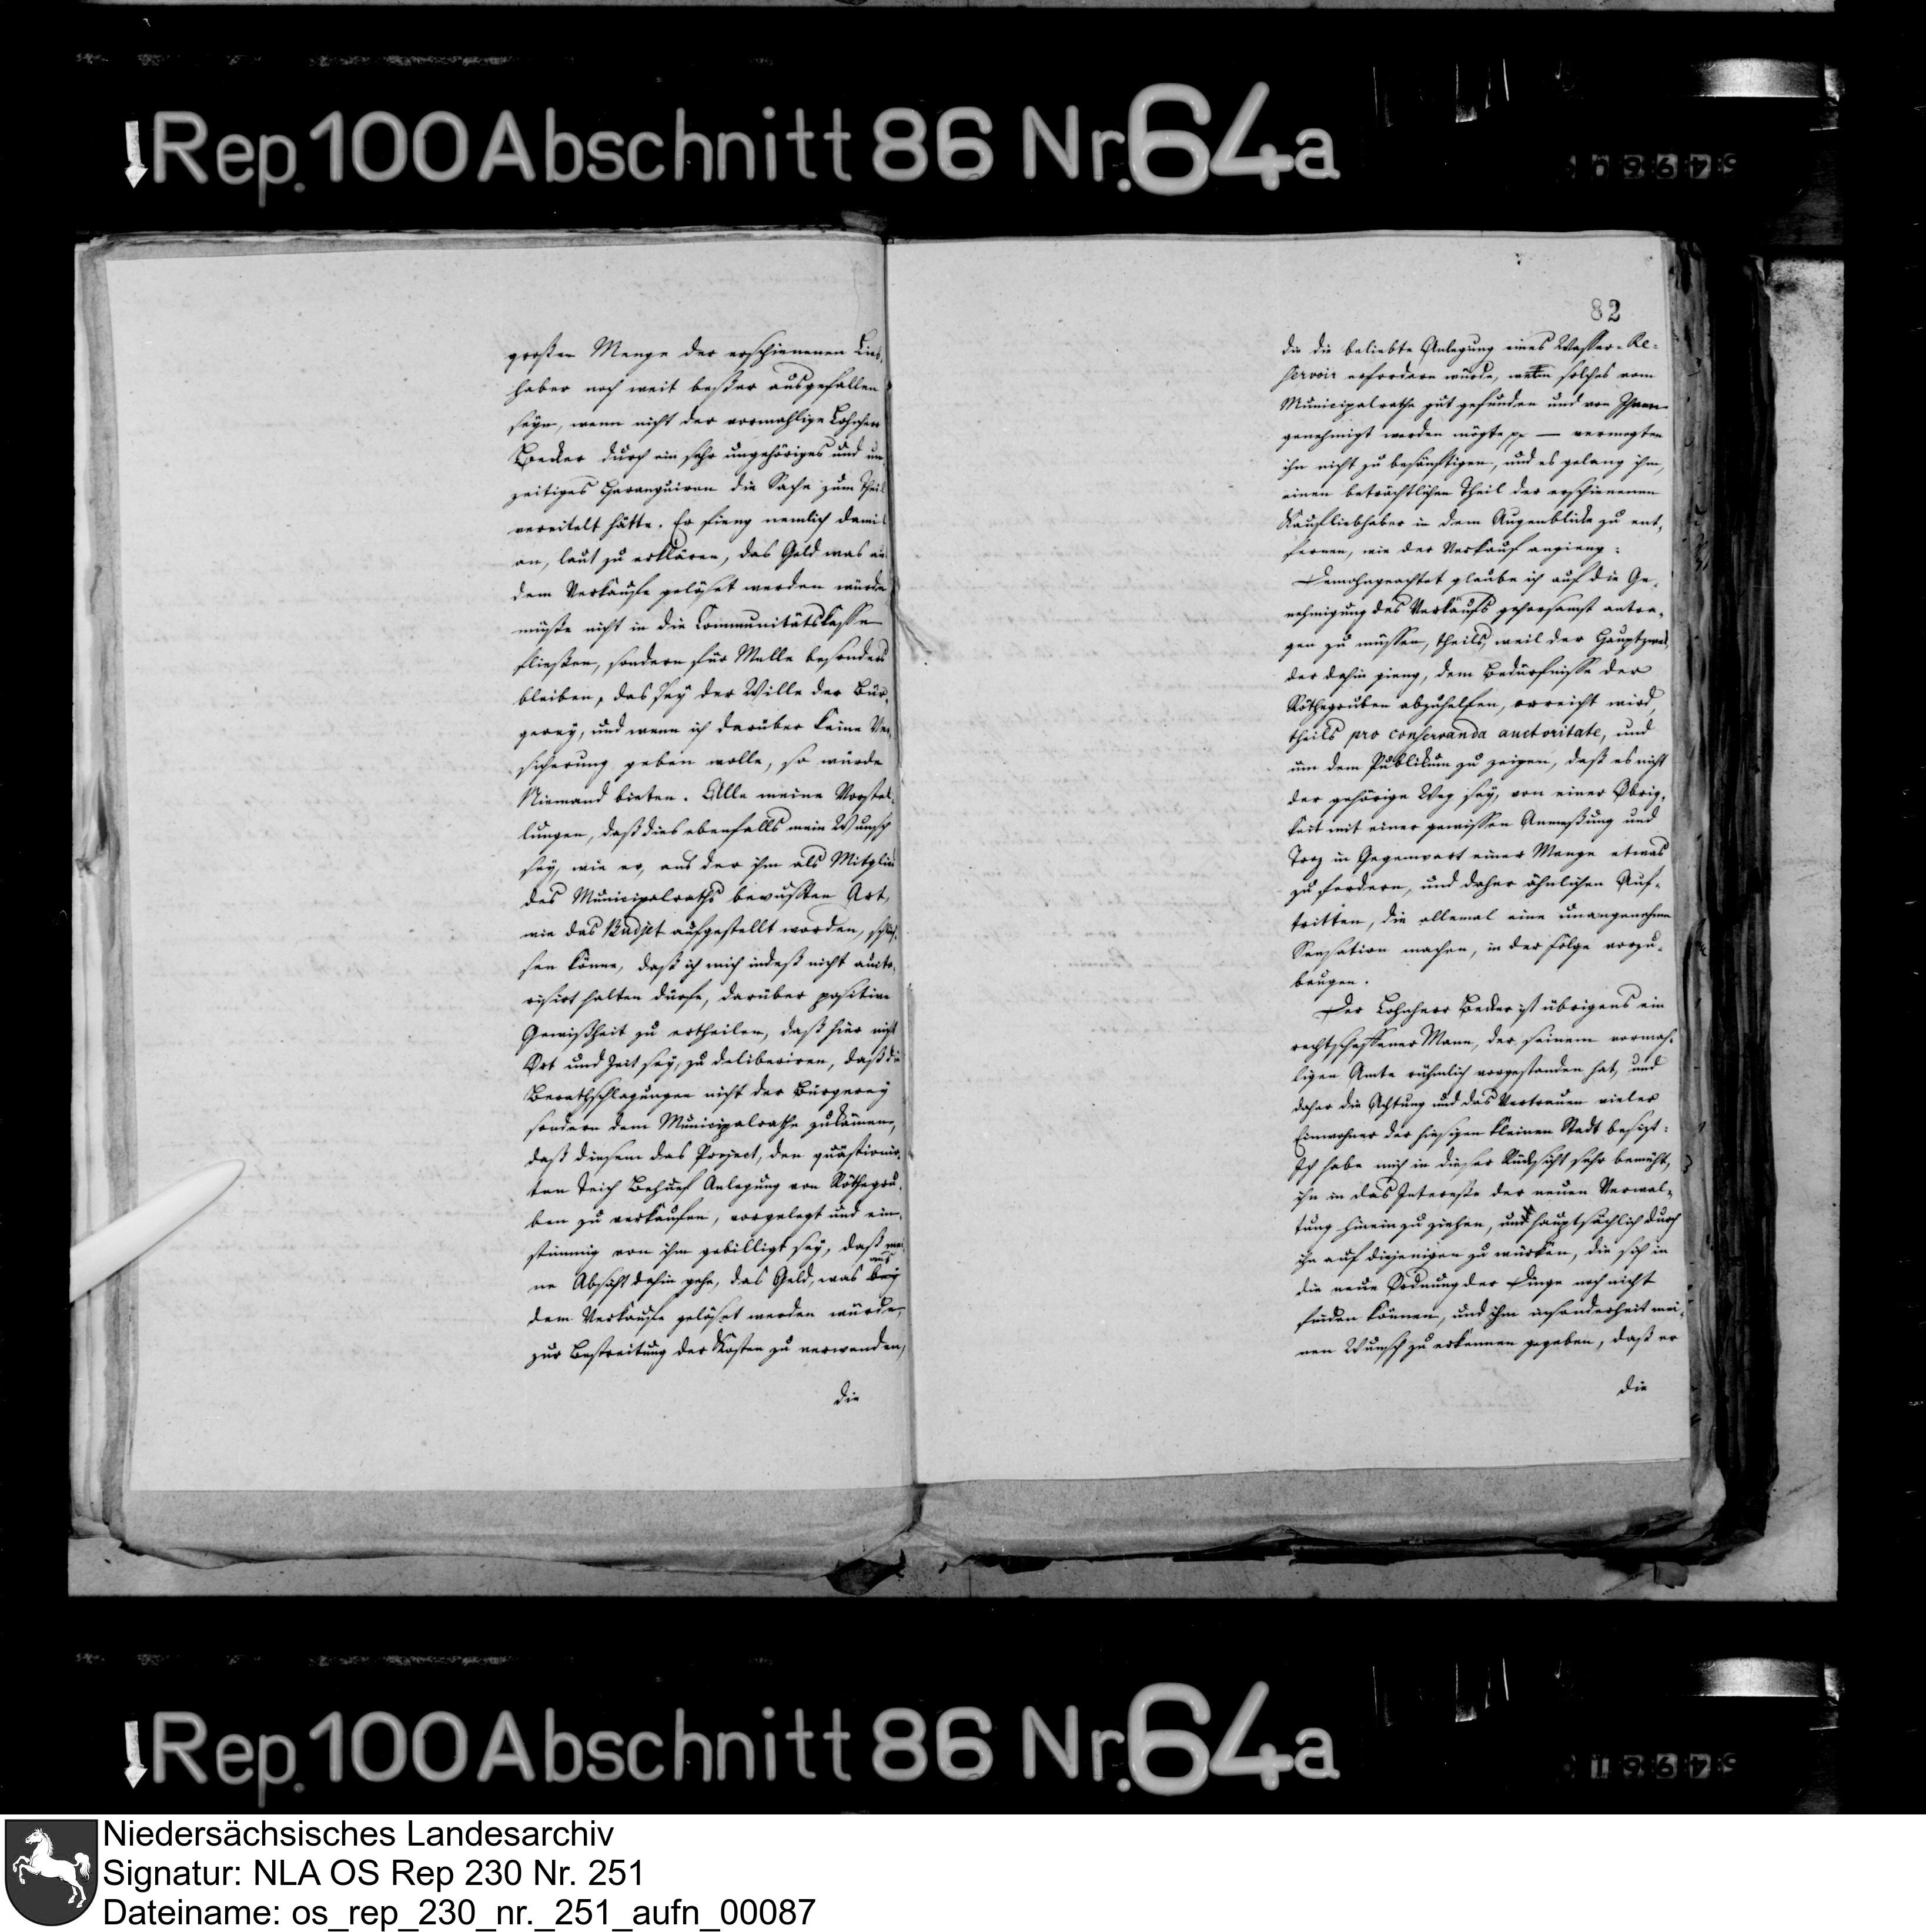 Rep. 100 Abschnitt 86 Nr. 64a
großen Menge der erschienenen Lieb-
haber noch weit beßer ausgefallen
seyn, wenn nicht der vormahlige Lohnherr
Becker durch ein sehr ungehöriges und un-
zeitiges Haranguiren die Sache zum Theil
vereitelt hätte. Er fieng nemlich damit
an, laut zu erklären, das Geld was aus
dem Verkaufe gelöset werden würde
müße nicht in die Communitätskasse
fließen, sondern für Melle besonders
bleiben, das sey der Wille der Bür-
gerey, und wenn ich darüber keine Ver-
sicherung geben wolle, so würde
Niemand bieten. Alle meine Vorstel-
lungen, daß dies ebenfalls mein Wunsch
sey, wie er, aus der ihm als Mitglied
des Municipalraths bewußten Art,
wie das Budjet aufgestellt worden, schlie-
sen könne, daß ich mich indeß nicht aucto-
risirt halten dürfe, darüber positive
Gewißheit zu ertheilen, daß hier nicht
Ort und Zeit sey, zu deliberiren, daß die
Berathschlagungen nicht der Bürgerey
sondern dem Municipalrathe zukämen,
daß diesem das Project, den quästionir-
ten Teich Behuef Anlegung von Röthegru-
ben zu verkaufen, vorgelegt und ein-
stimmig von ihm gebilligt sey, daß mei-
ne Absicht dahin gehe, das Geld, was aus
dem Verkaufe gelöset werden würde,
zur Bestreitung der Kosten zu verwenden,
die
82
die die beliebte Anlegung eines Wasser-Re-
servoir erfordern würde, wenn solches vom
Municipalrathe gut gefunden und von Ihnen
genehmigt werden mögte pp — vermogten
ihn nicht zu besänftigen, und es gelang ihm,
einen beträchtlichen Theil der erschienenen
Kaufliebhaber in dem Augenblicke zu ent-
fernen, wie der Verkauf angieng.
Demohngeachtet glaube ich auf die Ge-
nehmigung des Verkaufs gehorsamst antra-
gen zu müssen, theils, weil der Hauptzwek,
der dahin gieng, dem Bedürfnisse der
Röthegruben abzuhelfen, erreicht wird,
theils pro conservanda auctoritate, und
um dem Publikum zu zeigen, daß es nicht
der gehörige Weg sey, von einer Obrig-
keit mit einer gewissen Anmaßung und
Troz in Gegenwart einer Menge etwas
zu fordern, und daher ähnlichen Auf-
tritten, die allemal eine unangenehme
Sensation machen, in der Folge vorzu-
beugen.
Der Lohnherr Becker ist übrigens ein
rechtschaffener Mann, der seinem vormah-
ligen Amte rühmlich vorgestanden hat, und
daher die Achtung und das Vertrauen vieler
Einwohner der hiesigen kleinen Stadt besizt.
Ich habe mich in dieser Rücksicht sehr bemüht,
ihn in das Interesse der neuen Verwal-
tung hinein zu ziehen, und hauptsächlich durch
ihn auf diejenigen zu würken, die sich in
die neue Ordnung der Dinge noch nicht
finden können, und ihm insonderheit mei-
nen Wunsch zu erkennen gegeben, daß er
die
Rep. 100 Abschnitt 86 Nr. 64a
Niedersächsisches Landesarchiv
Signatur: NLA OS Rep 230 Nr. 251
Dateiname: os_rep_230_nr._251_aufn_00087